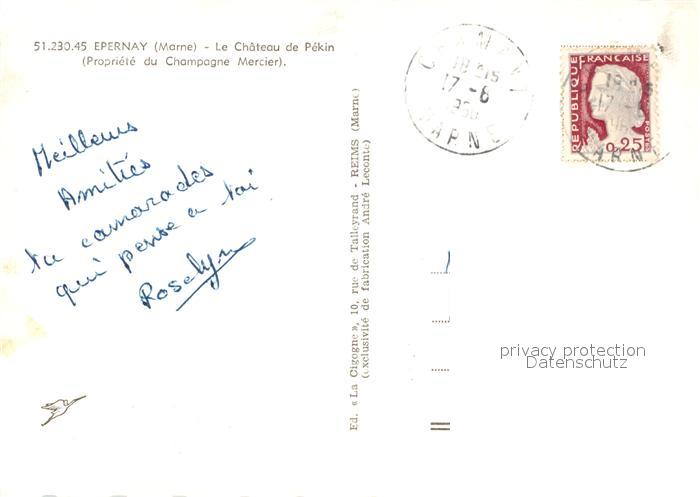 51.230.45 EPERNAY (Marne) - Le Château de Pékin
(Propriété du Champagne Mercier).
Meilleurs
Amitiés
ta camarades
qui pense a toi
Roselyne
Ed. « La Cigogne », 10, rue de Talleyrand - REIMS (Marne)
(exclusivité de fabrication André Leconte)
18H15
17 -6
MARNE
REPUBLIQUE FRANÇAISE
0,25
POSTES
privacy protection
Datenschutz